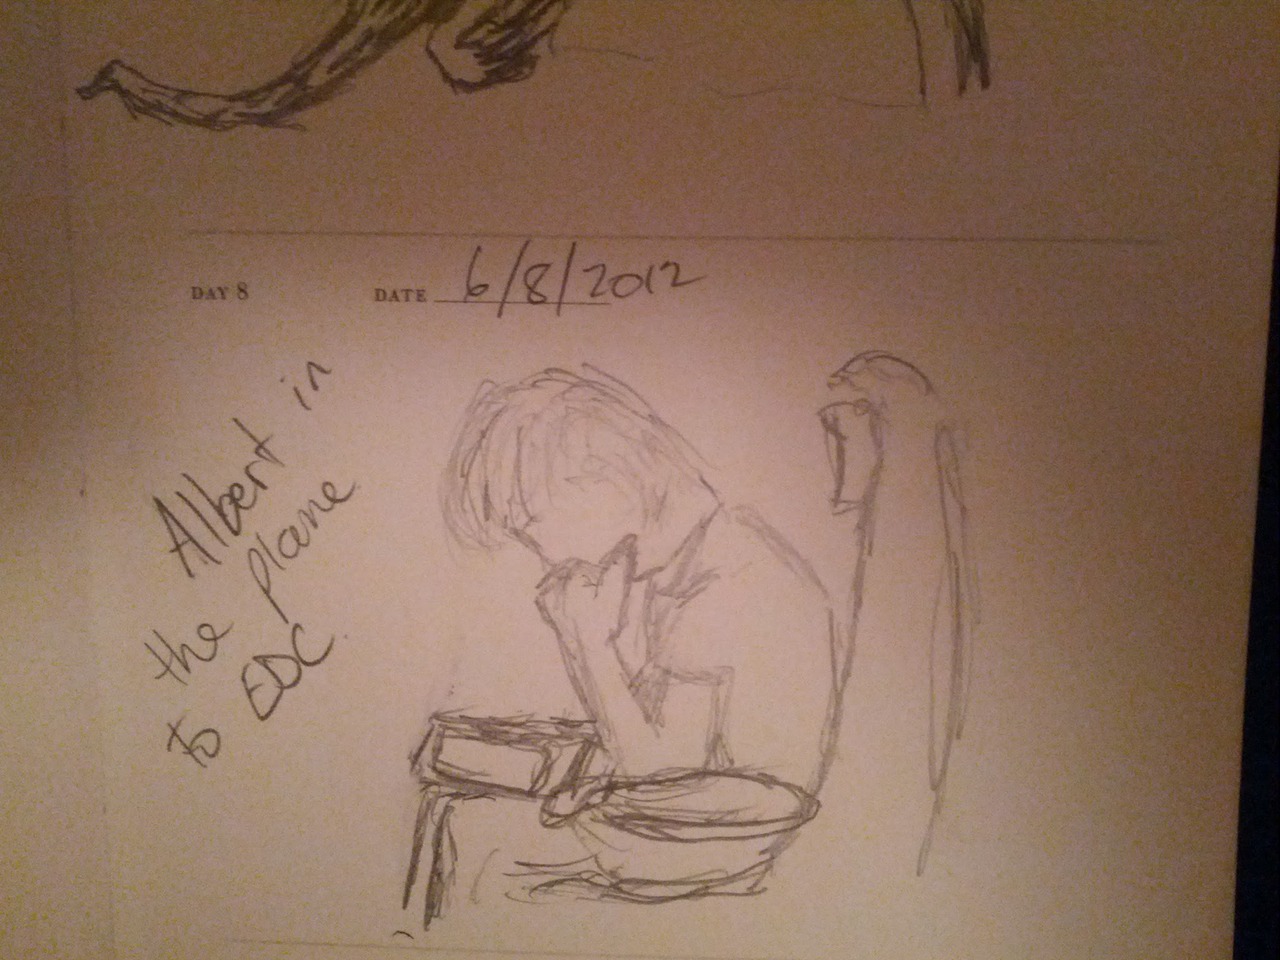 DAY 8 DATE 6/8/2012
Albert in
the plane
to EDC